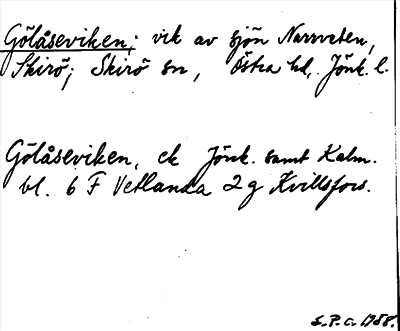 Gölåseviken; vik av sjön Narrveten,
Skirö; Skirö sn, Östra hd, Jönk. l.
Gölåseviken, ek Jönk. samt Kalm.
bl. 6 F Vetlanda 2 g Kvillsfors.
S.P.C. 1988.